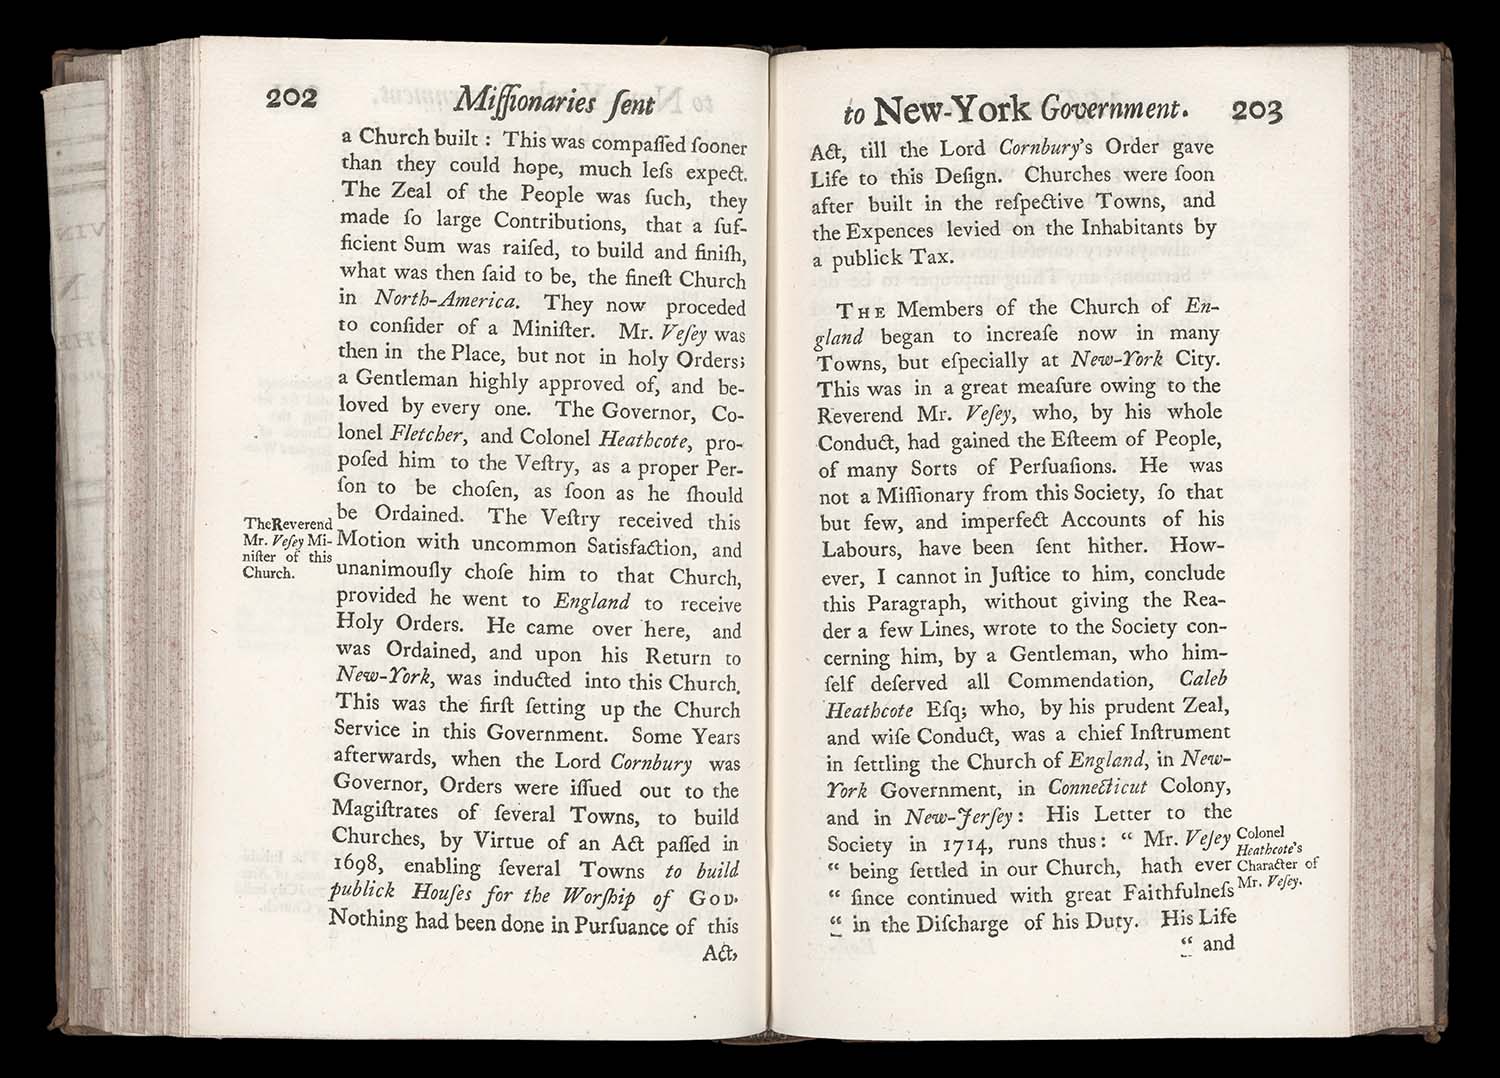 202
Miſſionaries ſent
a Church built : This was compaſſed ſooner
than they could hope, much leſs expect.
The Zeal of the People was ſuch, they
made ſo large Contributions, that a ſuf-
ficient Sum was raiſed, to build and finiſh,
what was then ſaid to be, the fineſt Church
in North-America. They now proceded
to conſider of a Miniſter. Mr. Veſey was
then in the Place, but not in holy Orders;
a Gentleman highly approved of, and be-
loved by every one. The Governor, Co-
lonel Fletcher, and Colonel Heathcote, pro-
poſed him to the Veſtry, as a proper Per-
ſon to be choſen, as ſoon as he ſhould
be Ordained. The Veſtry received this
Motion with uncommon Satisfaction, and
unanimouſly choſe him to that Church,
provided he went to England to receive
Holy Orders. He came over here, and
was Ordained, and upon his Return to
New-York, was inducted into this Church.
This was the firſt ſetting up the Church
Service in this Government. Some Years
afterwards, when the Lord Cornbury was
Governor, Orders were iſſued out to the
Magiſtrates of ſeveral Towns, to build
Churches, by Virtue of an Act paſſed in
1698, enabling ſeveral Towns to build
publick Houſes for the Worſhip of GOD.
Nothing had been done in Purſuance of this
Act,
TheReverend
Mr. Veſey Mi-
niſter of this
Church.
to New-York Government. 203
Act, till the Lord Cornbury's Order gave
Life to this Deſign. Churches were ſoon
after built in the reſpective Towns, and
the Expences levied on the Inhabitants by
a publick Tax.
THE Members of the Church of En-
gland began to increaſe now in many
Towns, but eſpecially at New-York City.
This was in a great meaſure owing to the
Reverend Mr. Veſey, who, by his whole
Conduct, had gained the Eſteem of People,
of many Sorts of Perſuaſions. He was
not a Miſſionary from this Society, ſo that
but few, and imperfect Accounts of his
Labours, have been ſent hither. How-
ever, I cannot in Juſtice to him, conclude
this Paragraph, without giving the Rea-
der a few Lines, wrote to the Society con-
cerning him, by a Gentleman, who him-
ſelf deſerved all Commendation, Caleb
Heathcote Eſq; who, by his prudent Zeal,
and wiſe Conduct, was a chief Inſtrument
in ſettling the Church of England, in New-
York Government, in Connecticut Colony,
and in New-Jerſey : His Letter to the
Society in 1714, runs thus : “ Mr. Veſey
“ being ſettled in our Church, hath ever
“ ſince continued with great Faithfulneſs
“ in the Diſcharge of his Duty. His Life
“ and
Colonel
Heathcote's
Character of
Mr. Veſey.